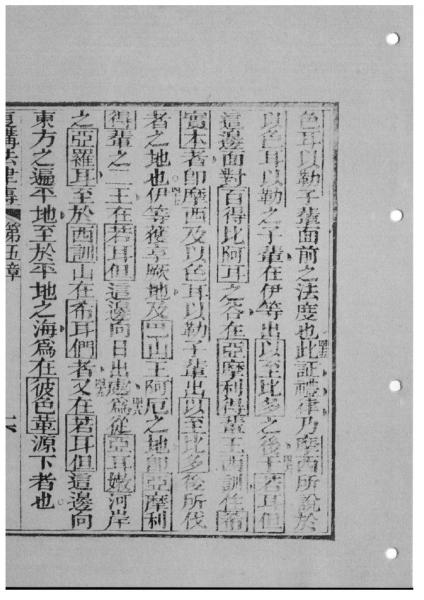 色耳以勒子輩面前之法度也此証禮律乃摩西所說於
以色耳以勒之子輩在伊等出以至比多之後于若耳但
這邊面對百得比阿耳之谷在亞摩利得輩王西訓住希
實本者即摩西及以色耳以勒子輩出以至比多後所伐
者之地也伊等獲享厥地及巴山王阿厄之地即亞摩利
得輩之二王在若耳但這邊向日出處為從亞耳嫩河岸
之亞羅耳至於西訓山在希耳們者又在若耳但這邊向
東方之遍平地至於平地之海為在彼色革源下者也
講法律傳 第五章